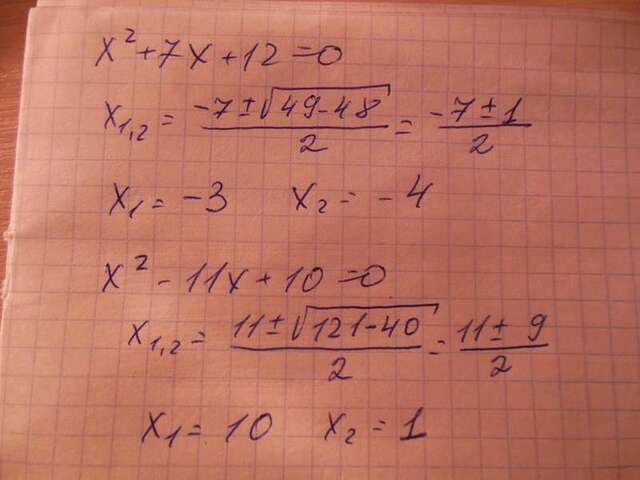 x² + 7x + 12 = 0
x₁,₂ = (-7 ± √(49 - 48))/2 = (-7 ± 1)/2
x₁ = -3 x₂ = -4
x² - 11x + 10 = 0
x₁,₂ = (11 ± √(121 - 40))/2 = (11 ± 9)/2
x₁ = 10 x₂ = 1